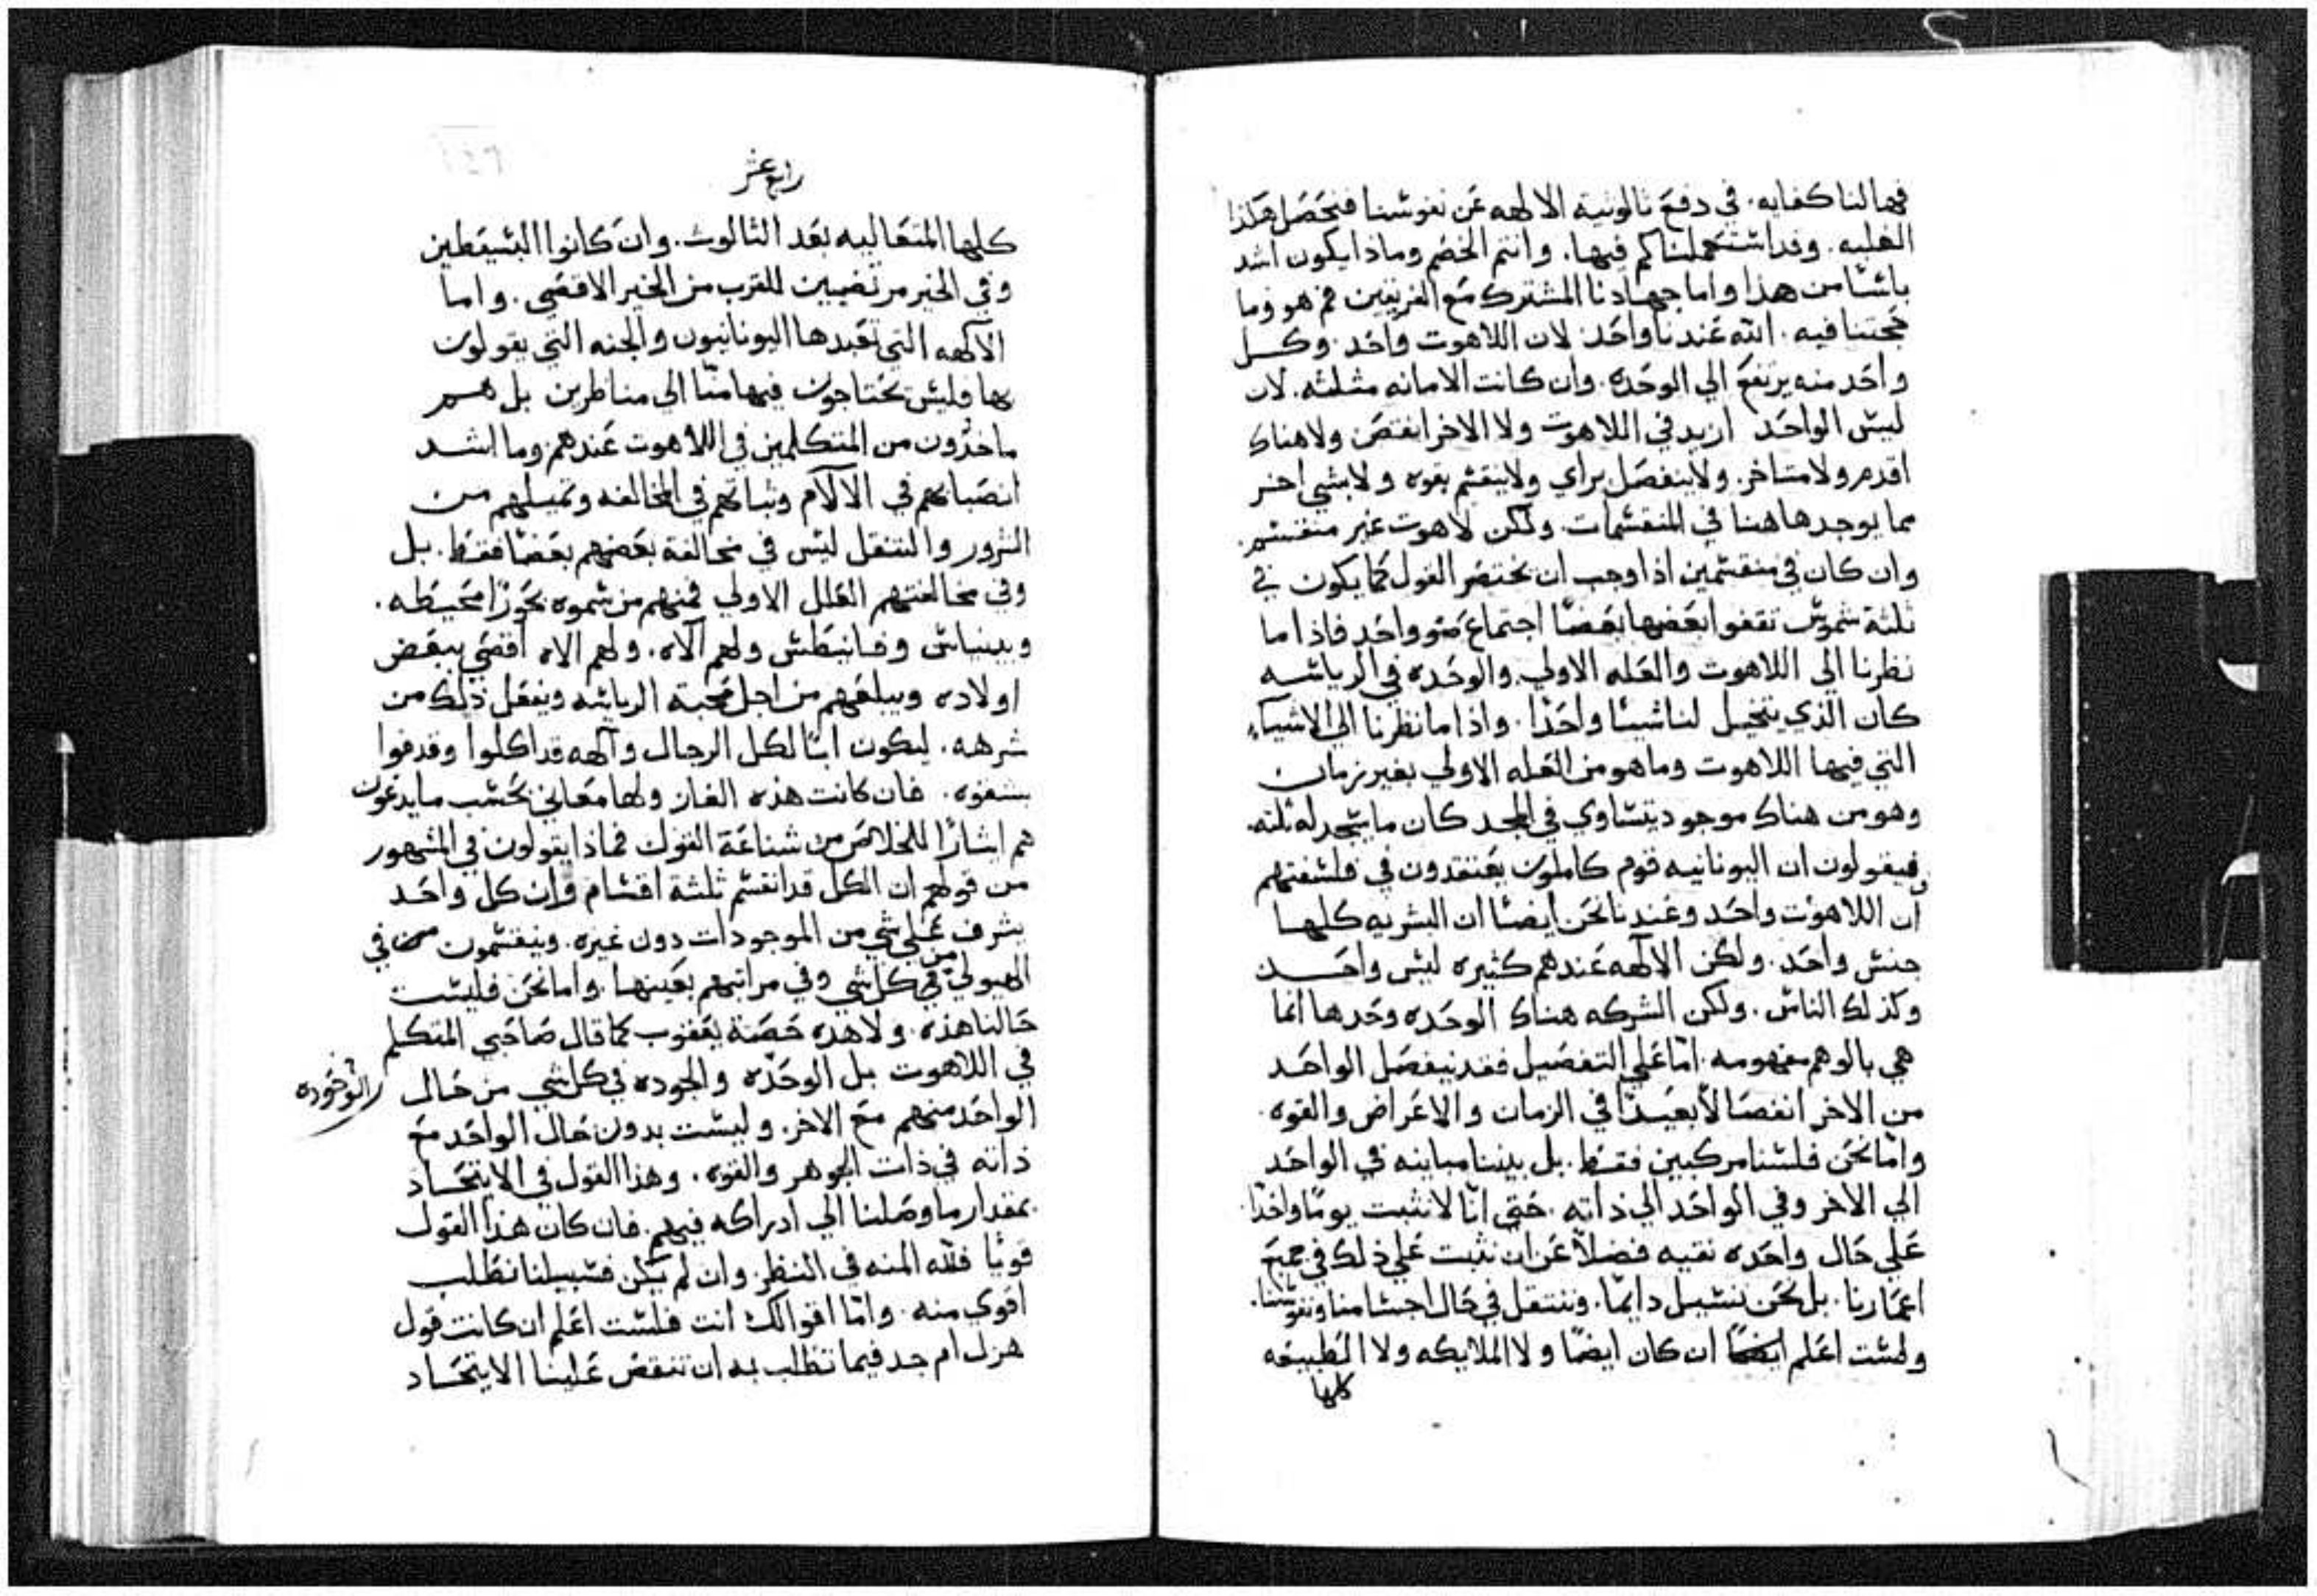 فهالنا كفايه. في دفع تالونية الالهه عن نفوسنا فتحصل هكذا
الغلبه. وقد اشتعملناكم فيها. وانتم الخصم وماذا يكون اشد
باسًا من هذا واما جهادنا المشترك مع الفريقين فم هو وما
حجتنا فيه. الله عندنا واحد لان اللاهوت واحد. وكل
واحد منه يرتفع الي الوحده. وان كانت الامانه مثلثه. لان
ليس الواحد ازيد في اللاهوت ولا الاخر انقص ولا هناك
اقدم ولا متاخر. ولا ينفصل براي ولا ينقسم بقوه ولا بشي اخر
مما يوجد هاهنا في المنقسمات. ولكن لاهوت غير منقسم.
وان كان في منقسمين اذا وجب ان نختصر القول كما يكون في
ثلثة شموس تقفوا بعضها بعضًا اجتماع ضو واحد فاذا ما
نظرنا الي اللاهوت والعله الاولي والوحده في الرياسه
كان الذي يتخيل لنا شيئا واحدًا. واذا ما نظرنا الي الاشياء
التي فيها اللاهوت وما هو من العله الاولي بغير زمان
وهو من هناك موجود يتساوي في المجد كان ما يتجد له ثلثه.
فيقولون ان اليونانيه قوم كاملون يعتقدون في فلسفتهم
ان اللاهوت واحد وعندنا نحن ايضًا ان البشريه كلها
جنس واحد. ولكن الالهه عندهم كثيره ليس واحد
وكذلك الناس. ولكن الشركه هناك الوحده وحدها انما
هي بالوهم مفهومه. اما علي التفصيل فقد ينفصل الواحد
من الاخر انفصالًا بعيدًا في الزمان والاعراض والقوه.
واما نحن فلسنا مركبين فقط. بل بيننا مباينه في الواحد
الي الاخر وفي الواحد الي ذاته. حتي انا لا نثبت يومًا واحدًا
علي حال واحده نقيه فضلًا عن ان نثبت علي ذلك في جميع
اعمارنا. بل نحن نسيل دايمًا. وننتقل في حال اجسامنا ونفوسنا.
ولست اعلم ان كان ايضًا ولا الملايكه ولا الطبيعه
كلها
رابع عشر
كلها المتعاليه بعد الثالوث. وان كانوا البسيطين
وفي الخير مرتضيين للقرب من الخير الاقصي. واما
الآلهه التي تعبدها اليونانيون والجنه التي يقولون
بها فليس تحتاجون فيها منا الي مناظرين بل هم
ماخذون من المتكلمين في اللاهوت عندهم وما اشد
انصبابهم في الالآم وثباتهم في المخالفه وتميلهم من
الشرور والتنقل ليس في مخالفة بعضهم بعضًا فقط. بل
وفي مخالفتهم العلل الاولي فمنهم من سموه بحورًا محيطه.
وبيناس وفانيطس ولهم آلاه. ولهم الاه اقصي يبغض
اولاده ويبلعهم من اجل محبة الرياسه ويفعل ذلك من
شرهه. ليكون ابًا لكل الرجال وآلهه قد اكلوا وقدفوا
بشقوه. فان كانت هذه الغاز ولها معاني بحسب ما يدعون
هم ايثارًا للخلاص من شناعة القول فماذا يقولون في المشهور
من قولهم ان الكل قد انقسم ثلثة اقسام وان كل واحد
يشرف علي شي من الموجودات دون غيره. وينقسمون في
الهيولي من كل شي وفي مراتبهم بعينها. واما نحن فليست
حالنا هذه. ولا هده حصة يعقوب كما قال صاحبي المتكلم
في اللاهوت بل الوحده والجوده في كل شي من حال
الواحد منهم مع الاخر. وليست بدون حال الواحد مع
ذاته في ذات الجوهر والقوه. وهذا القول في الايتحاد
بمقدار ما وصلنا الي ادراكه فيهم. فان كان هذا القول
قويًا فلله المنه في النظر. وان لم يكن فسبيلنا نطلب
اقوي منه. واما اقوالك انت فلست اعلم ان كانت قول
هزل ام جد فيما تطلب به ان تنقض علينا الايتحاد